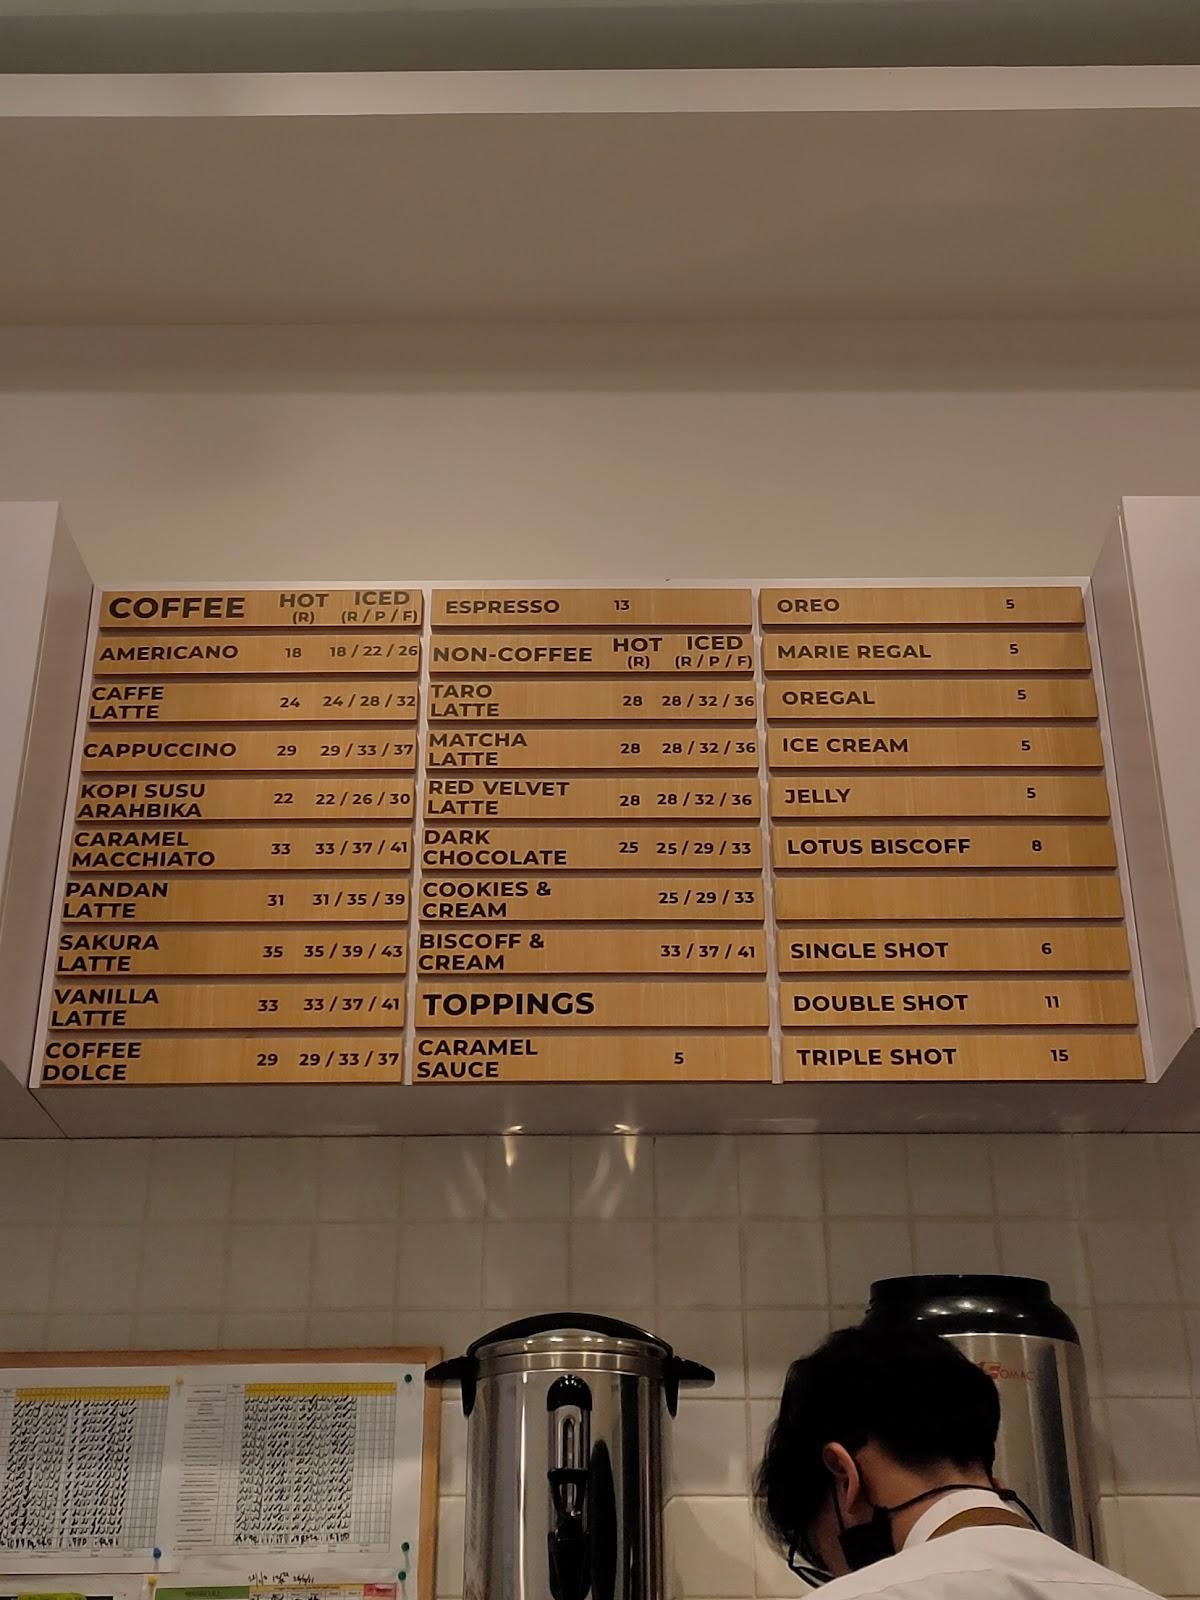 COFFEE HOT ICED
(R) (R / P / F)
AMERICANO 18 18 / 22 / 26
CAFFE
LATTE 24 24 / 28 / 32
CAPPUCCINO 29 29 / 33 / 37
KOPI SUSU
ARAHBIKA 22 22 / 26 / 30
CARAMEL
MACCHIATO 33 33 / 37 / 41
PANDAN
LATTE 31 31 / 35 / 39
SAKURA
LATTE 35 35 / 39 / 43
VANILLA
LATTE 33 33 / 37 / 41
COFFEE
DOLCE 29 29 / 33 / 37
ESPRESSO 13
NON-COFFEE HOT ICED
(R) (R / P / F)
TARO
LATTE 28 28 / 32 / 36
MATCHA
LATTE 28 28 / 32 / 36
RED VELVET
LATTE 28 28 / 32 / 36
DARK
CHOCOLATE 25 25 / 29 / 33
COOKIES &
CREAM 25 / 29 / 33
BISCOFF &
CREAM 33 / 37 / 41
TOPPINGS
CARAMEL
SAUCE 5
OREO 5
MARIE REGAL 5
OREGAL 5
ICE CREAM 5
JELLY 5
LOTUS BISCOFF 8
SINGLE SHOT 6
DOUBLE SHOT 11
TRIPLE SHOT 15